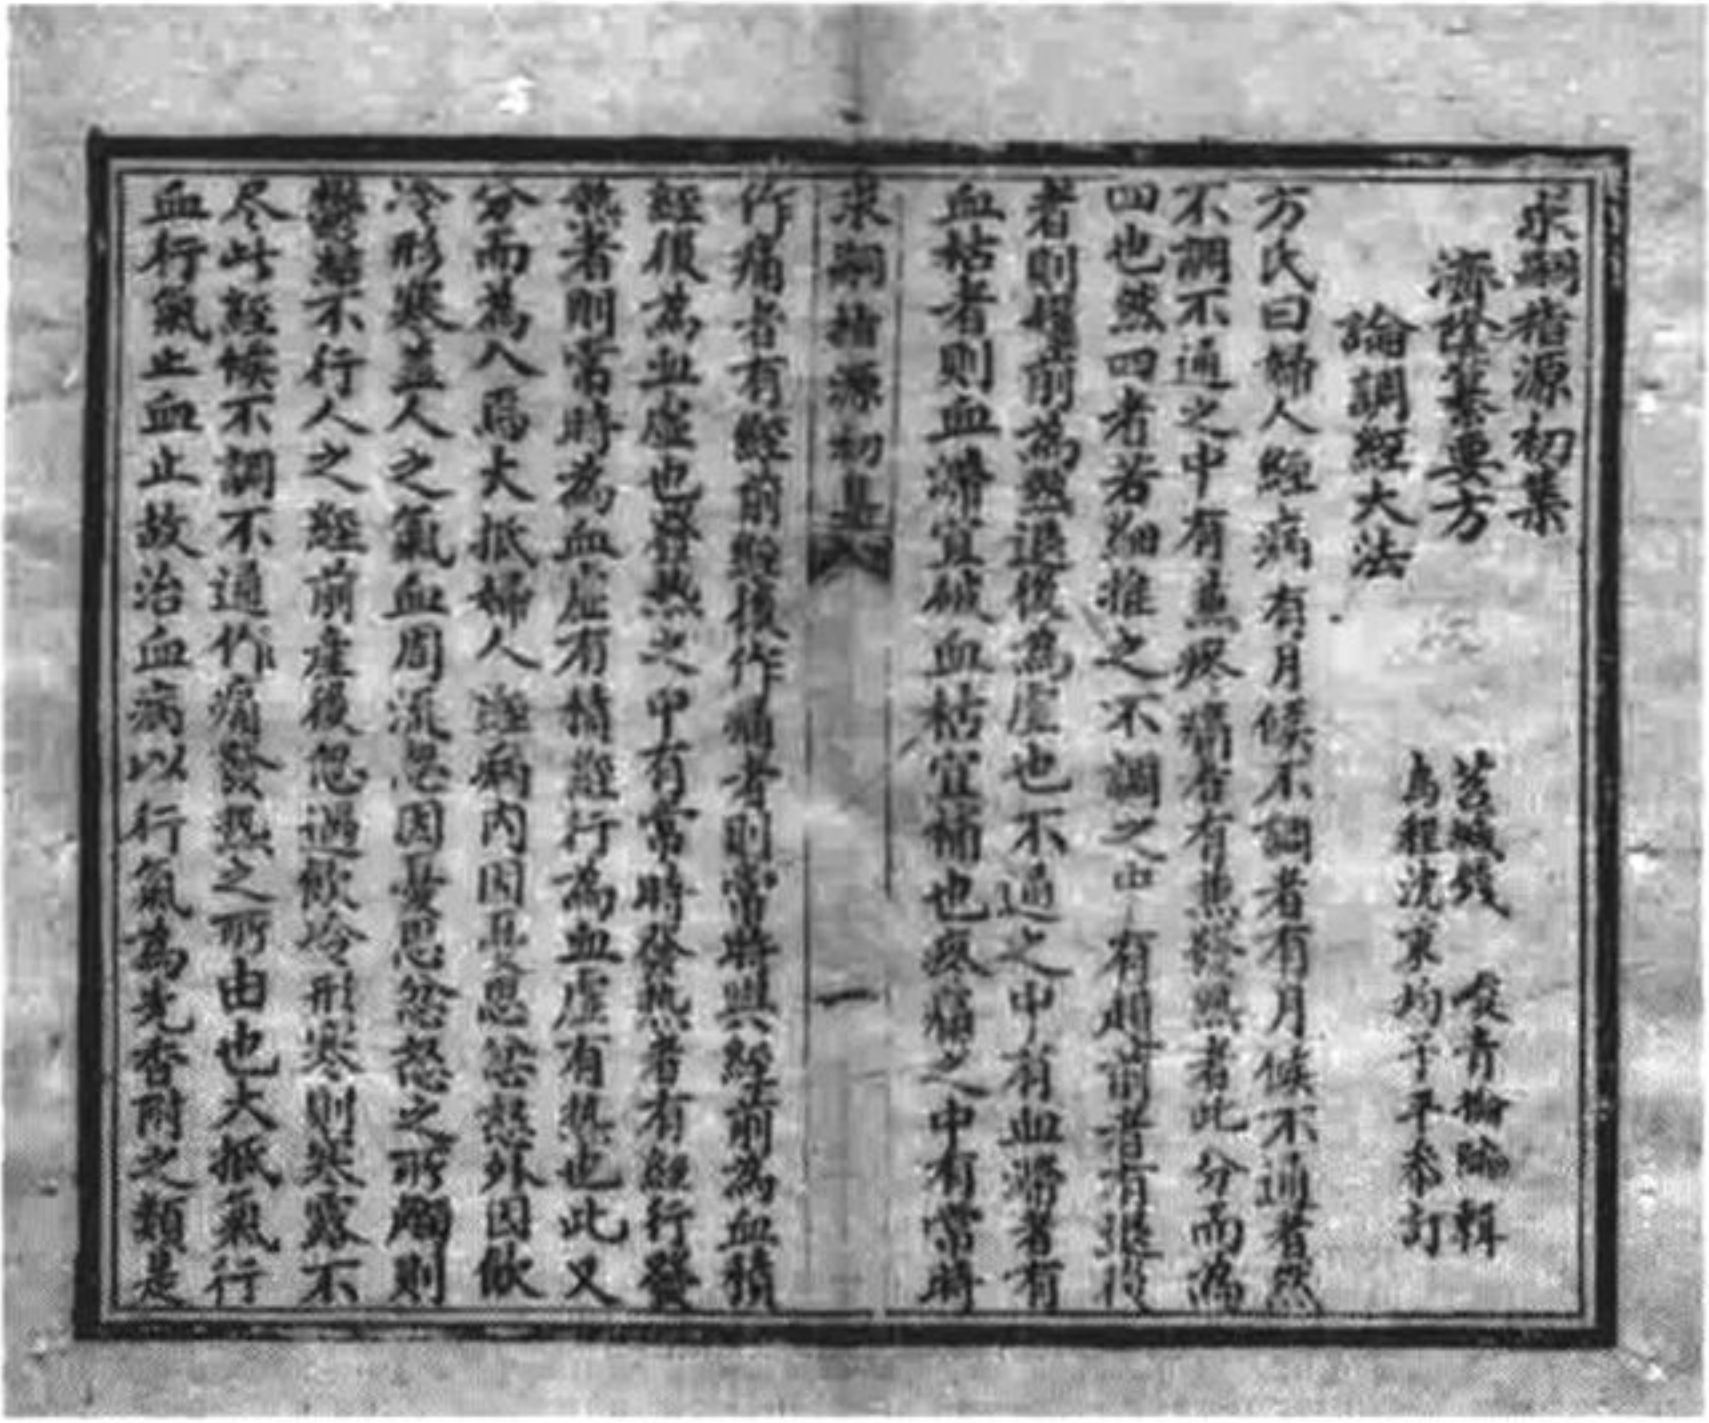 求嗣指源初集
濟陰纂要方
苕城錢 峻青掄 輯
烏程沈 秉均于平參訂
論調經大法
方氏曰婦人經病有月候不調者有月候不通者然
不調不通之中有兼疼痛者有兼發熱者此分而為
四也然四者若細推之不調之中有趲前者有退後
者則趲前為熱退後為虛也不通之中有血滯者有
血枯者則血滯宜破血枯宜補也疼痛之中有常時
求嗣指源初集
一
作痛者有經前經後作痛者則常時與經前為血積
經後為血虛也發熱之中有常時發熱者有經行發
熱者則常時為血虛有積經行為血虛有熱也此又
分而為八焉大抵婦人經病內因憂思忿怒外因飲
冷形寒蓋人之氣血周流忽因憂思忿怒之所觸則
鬱結不行人之經前產後忽遇飲冷形寒則寒露不
尽此經候不調不通作痛發熱之所由也大抵氣行
血行氣止血止故治血病以行氣為先香附之類是